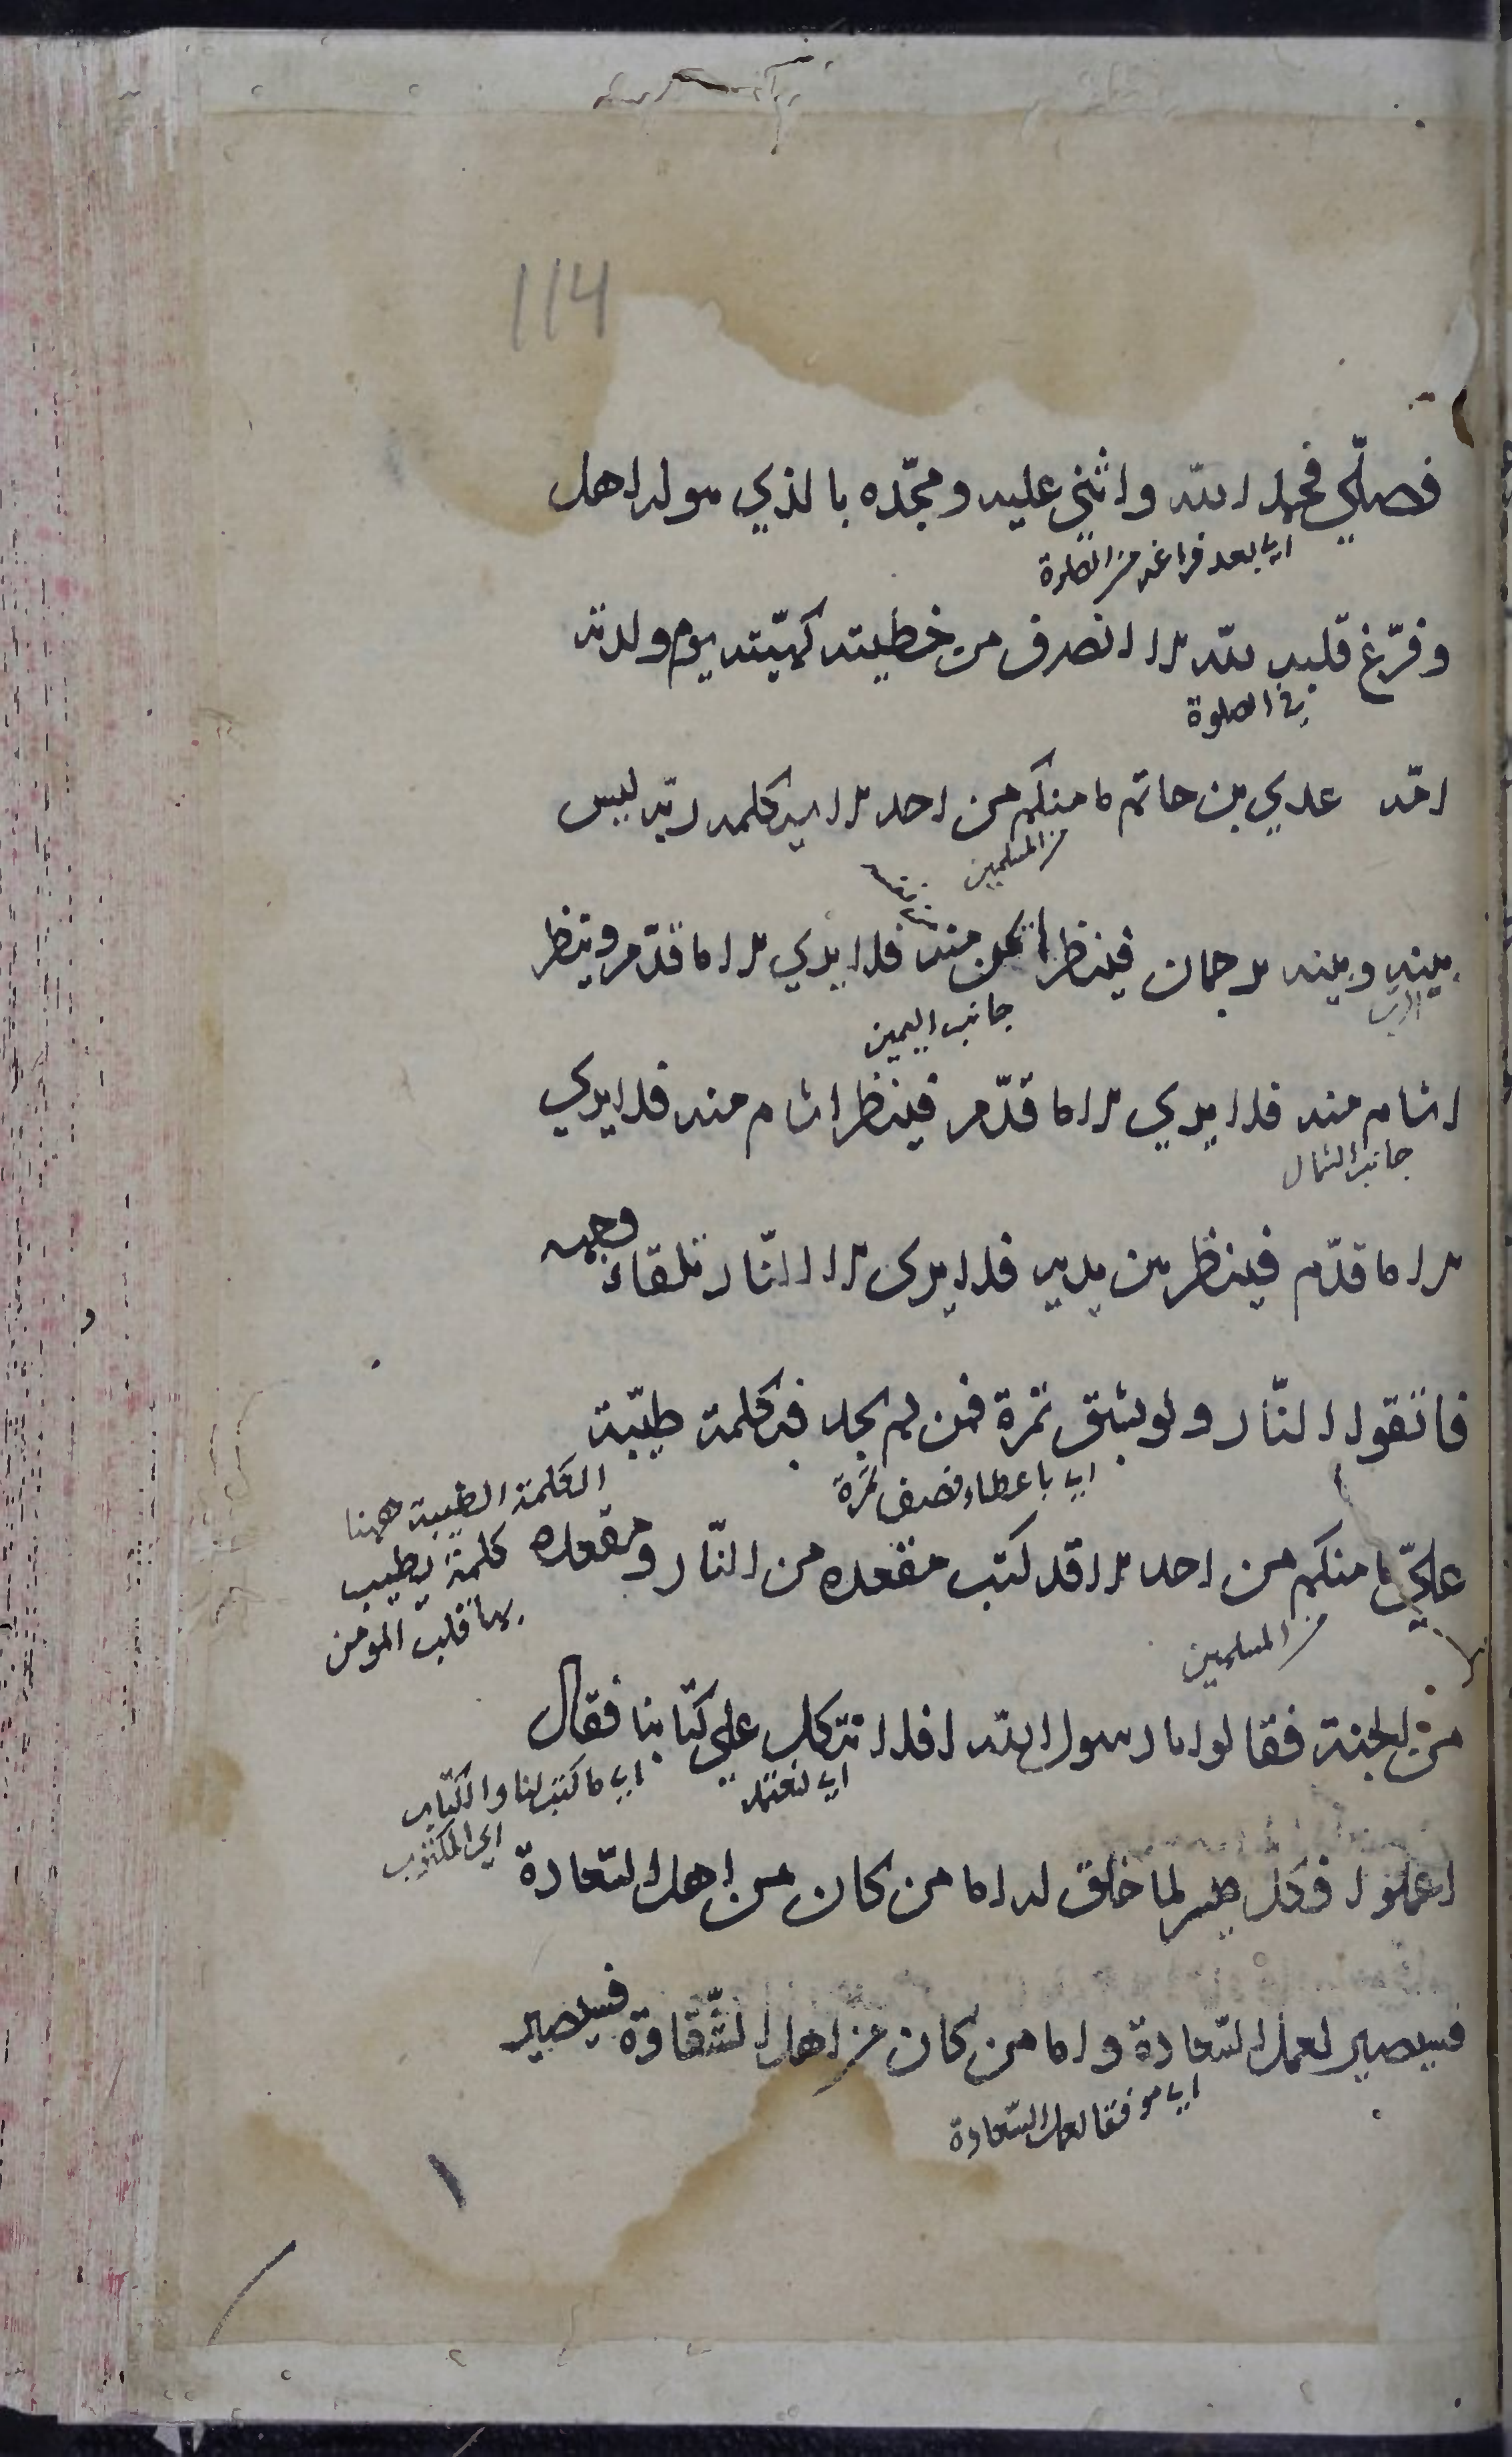 114
فصلّي فحمد الله واثني عليه ومجّده بالذي هو له اهل
اي بعد فراغه من الصلوة
وفرّغ قلبه لله الا انصرف من خطيئته كهيئته يوم ولدته
في الصلوة
امّه عدي بن حاتم ما منكم من احد الا سيكلمه ربّه ليس
من المسلمين
بينه وبينه ترجمان فينظر ايمن منه فلا يري الا ما قدّم وينظر
الرب
جانب اليمين
اشام منه فلا يري الا ما قدّم فينظر اشام منه فلا يري
جانب الشمال
الا ما قدّم فينظر بين يديه فلا يرى الا النّار تلقاء وجهه
فاتقوا النّار ولو بشق تمرة فمن لم يجد فبكلمة طيّبة
اي باعطاء نصف تمرة
الكلمة الطيبة ههنا
كلمة يطيب
بها قلب المومن
عليّ ما منكم من احد الا قد كتب مقعده من النّار ومقعده
من المسلمين
من الجنة فقالوا يا رسول الله افلا نتكل علي كتابنا فقال
اي نعتمد
اي ما كتب لنا والكتاب
اي المكتوب
اعملوا فكل ميسر لما خلق له اما من كان من اهل السّعادة
فسيصير لعمل السّعادة واما من كان من اهل الشّقاوة فسيصير
اي موفقا لعمل السّعادة